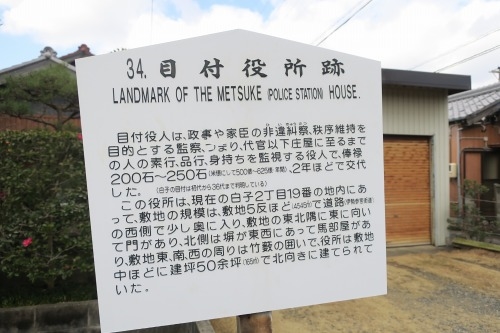 34. 目付役所跡
LANDMARK OF THE METSUKE (POLICE STATION) HOUSE.
目付役人は、政事や家臣の非違糾察、秩序維持を
目的とする監察、つまり、代官以下庄屋に至るまで
の人の素行、品行、身持ちを監視する役人で、俸禄
200石〜250石(米俵にして500俵〜625俵・年間)、2年ほどで交代
した。(白子の目付は初代から36代まで判明している)
この役所は、現在の白子2丁目19番の地内にあ
って、敷地の規模は、敷地5反ほど(4545㎡)で道路(伊勢参宮街道)
の西側で少し奥に入り、敷地の東北隅に東に向い
て門があり、北側は塀が東西にあって馬部屋があ
り、敷地東、南、西の周りは竹藪の囲いで、役所は敷地
中ほどに建坪50余坪(165㎡)で北向きに建てられて
いた。